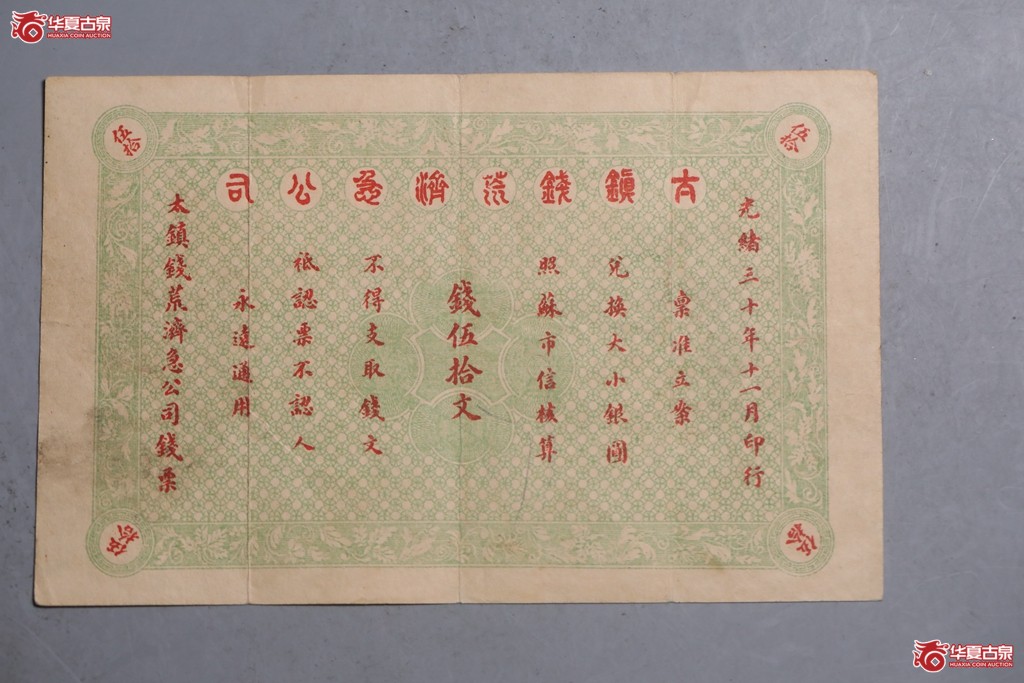 华夏古泉
HUAXIA COIN AUCTION
伍拾
伍拾
太鎮錢荒濟急公司
光緒三十年十一月印行
稟准立案
兌換大小銀圓
照蘇市信核算
錢伍拾文
不得支取錢文
祗認票不認人
永遠通用
太鎮錢荒濟急公司錢票
伍拾
伍拾
华夏古泉
HUAXIA COIN AUCTION